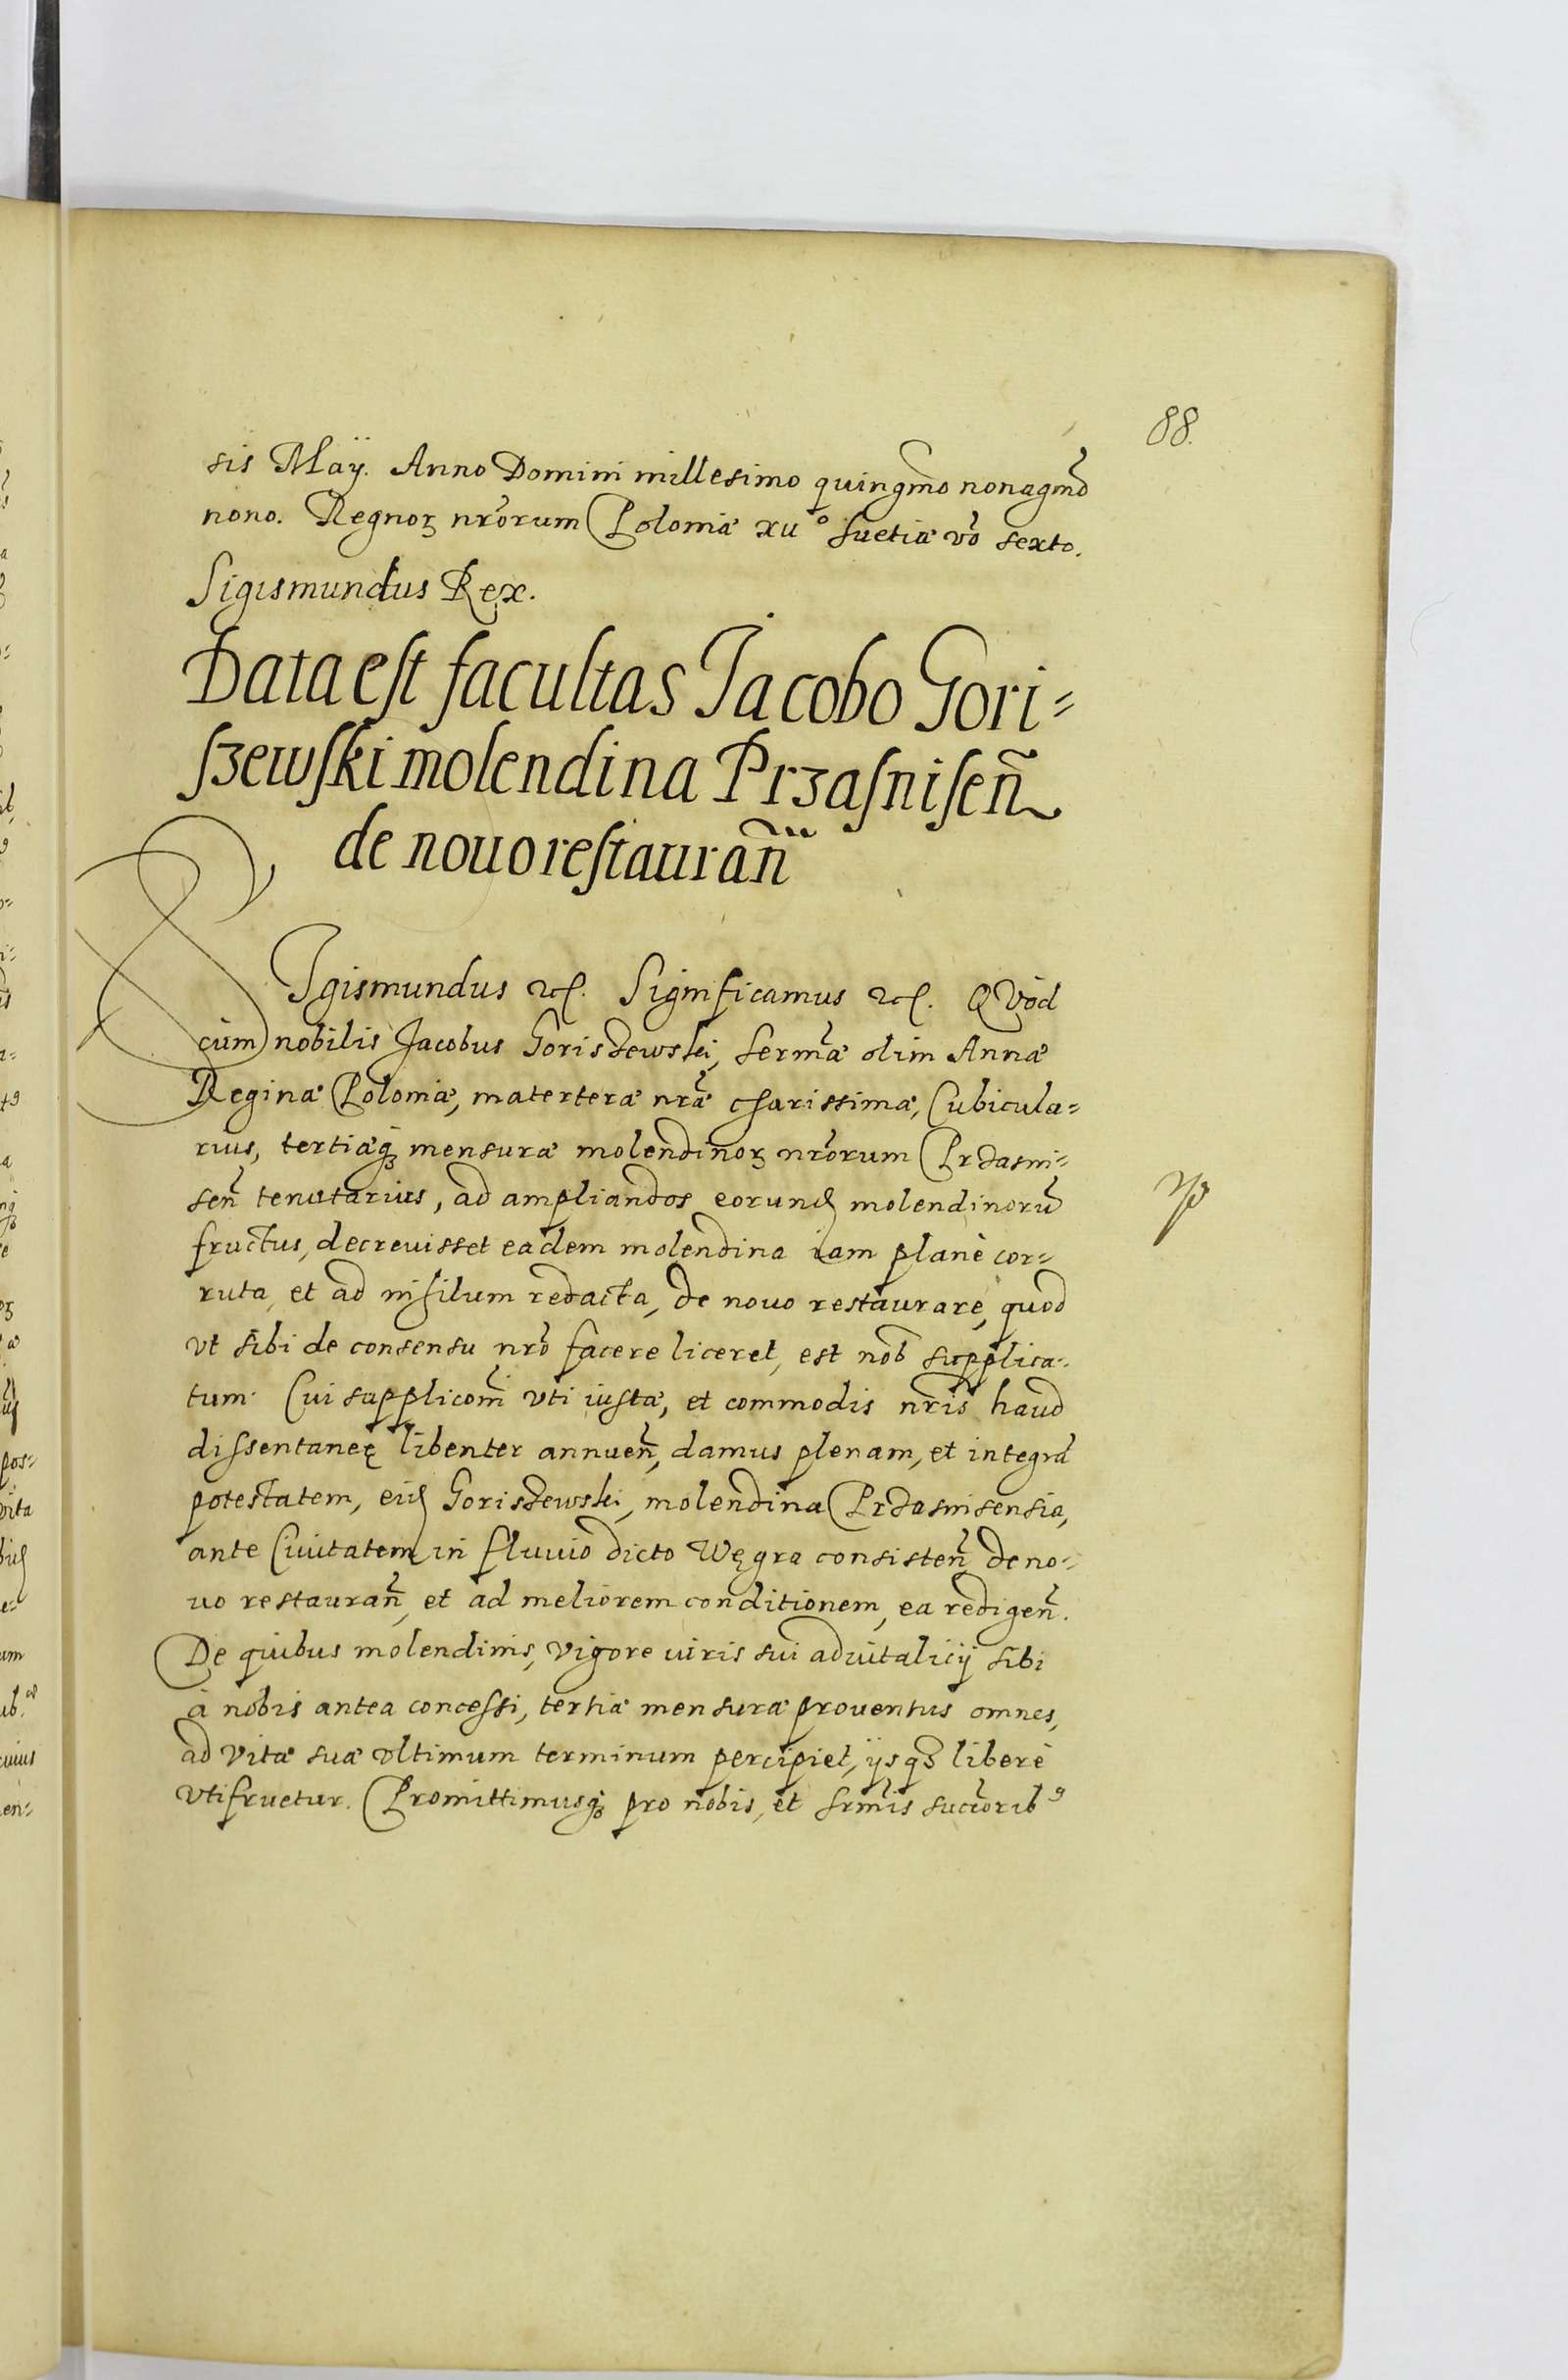 88.
sis Maÿ. Anno Domini millesimo quingmo nonagmo
nono. Regnoꝝ nrorum Poloniæ xii° Suetiæ vo sexto.
Sigismundus Rex.
Data est facultas Jacobo Gori=
szewski molendina Przasnisen̄
de nouo restauran̄
SIgismundus etc. Significamus etc. QVod
cùm nobilis Jacobus Goriszewski, Sermæ olim Annæ
Reginæ Poloniæ, materteræ nræ charissimæ, Cubicula=
rius, tertiæq₃ mensuræ molendinoꝝ nrorum Przasni=
sen̄ tenutarius, ad ampliandos eorund molendinorū
fructus, decreuisset eadem molendina iam planè cor=
ruta, et ad nihilum redacta, de nouo restaurare, quod
vt sibi de consensu nro facere liceret, est nob supplica=
tum. Cui supplicom vti iustæ, et commodis nris haud
dissentaneę libenter annuen̄, damus plenam, et integrā
potestatem, eid Goriszewski, molendina Przasnisensia,
ante Ciuitatem in fluuio dicto Węgra consisten̄ de no=
uo restauran̄, et ad meliorem conditionem, ea redigen̄.
De quibus molendinis, vigore iuris sui aduitalicij sibi
à nobis antea concessi, tertiæ mensuræ prouentus omnes,
ad vitæ suæ vltimum terminum percipiet, ijsq₃ liberè
vtifruetur. Promittimusq₃ pro nobis, et Srmis succorib9